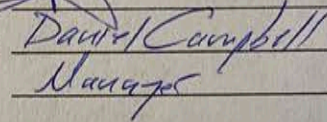 Daniel Campbell
Manager